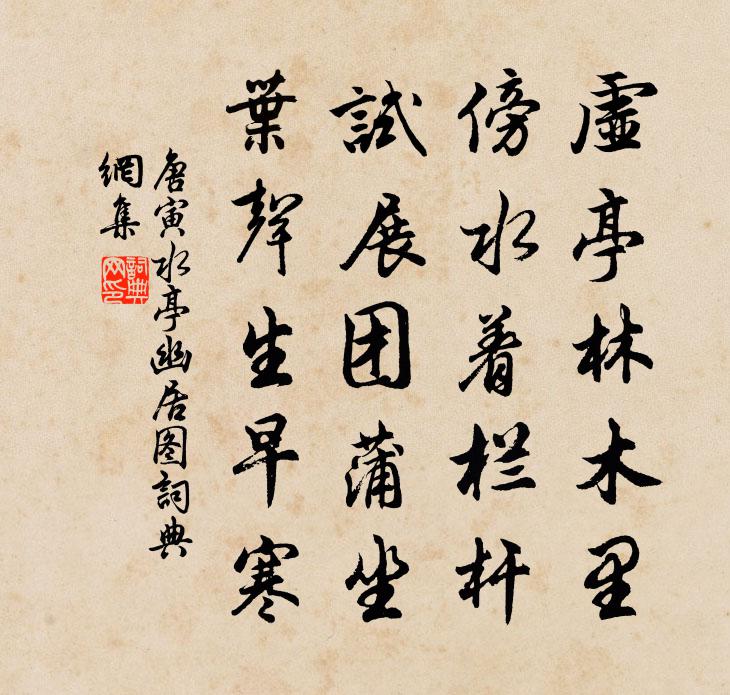 虚亭林木里
傍水着栏杆
試展团蒲坐
葉聲生早寒
唐寅水亭幽居图詞典
網集
詞典
网印